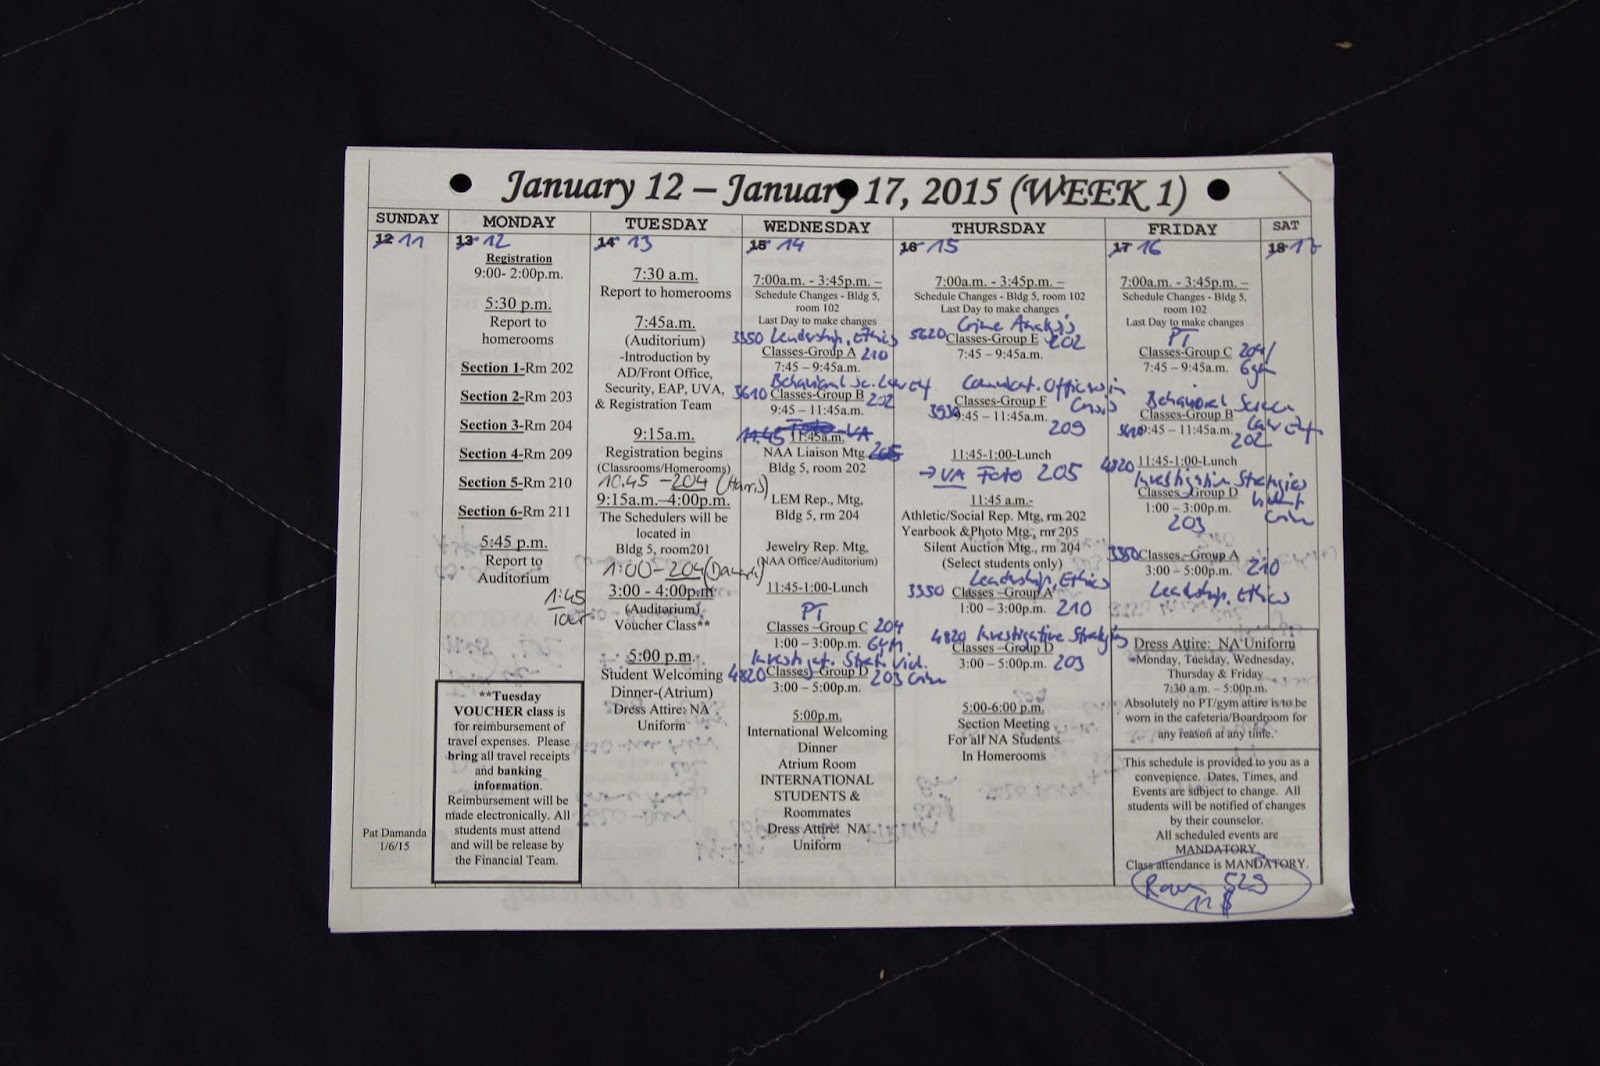 January 12 – January 17, 2015 (WEEK 1)
SUNDAY
12 11
Pat Damanda
1/6/15
MONDAY
13 12
Registration
9:00- 2:00p.m.
5:30 p.m.
Report to
homerooms
Section 1-Rm 202
Section 2-Rm 203
Section 3-Rm 204
Section 4-Rm 209
Section 5-Rm 210
Section 6-Rm 211
5:45 p.m.
Report to
Auditorium
1:45
Tour
**Tuesday
VOUCHER class is
for reimbursement of
travel expenses. Please
bring all travel receipts
and banking
information.
Reimbursement will be
made electronically. All
students must attend
and will be release by
the Financial Team.
TUESDAY
14 13
7:30 a.m.
Report to homerooms
7:45a.m.
(Auditorium)
-Introduction by
AD/Front Office,
Security, EAP, UVA,
& Registration Team
9:15a.m.
Registration begins
(Classrooms/Homerooms)
10.45 - 204 (Harris)
9:15a.m.–4:00p.m.
The Schedulers will be
located in
Bldg 5, room201
1:00 - 204
3:00 - 4:00p.m
(Auditorium)
Voucher Class**
5:00 p.m.
Student Welcoming
Dinner-(Atrium)
Dress Attire: NA
Uniform
WEDNESDAY
15 14
7:00a.m. - 3:45p.m. –
Schedule Changes - Bldg 5,
room 102
Last Day to make changes
3350 Leadership, Ethics
Classes-Group A 210
7:45 – 9:45a.m.
Behavioral Sc.
3610 Classes-Group B 202
9:45 – 11:45a.m.
11:45 Foto VA
11:45a.m.
NAA Liaison Mtg. 205
Bldg 5, room 202
LEM Rep., Mtg,
Bldg 5, rm 204
Jewelry Rep. Mtg,
(NAA Office/Auditorium)
11:45-1:00-Lunch
PT
Classes –Group C 204
1:00 – 3:00p.m. Gym
Investigat. Strat. Viol.
4820 Classes–Group D 203 Crim
3:00 – 5:00p.m.
5:00p.m.
International Welcoming
Dinner
Atrium Room
INTERNATIONAL
STUDENTS &
Roommates
Dress Attire: NA
Uniform
THURSDAY
16 15
7:00a.m. - 3:45p.m. –
Schedule Changes - Bldg 5, room 102
Last Day to make changes
Crime Analysis
5620 Classes-Group E 202
7:45 – 9:45a.m.
Comunicat. Officers in
Classes-Group F Crisis
3930 9:45 – 11:45a.m.
209
11:45-1:00-Lunch
→ VA Foto 205
11:45 a.m.-
Athletic/Social Rep. Mtg, rm 202
Yearbook & Photo Mtg., rm 205
Silent Auction Mtg., rm 204
(Select students only)
Leadership, Ethics
3350 Classes –Group A
1:00 – 3:00p.m. 210
4820 Investigative Strategies
Classes –Group D
3:00 – 5:00p.m. 203
5:00-6:00 p.m.
Section Meeting
For all NA Students
In Homerooms
FRIDAY
17 16
7:00a.m. - 3:45p.m. –
Schedule Changes - Bldg 5,
room 102
Last Day to make changes
PT
Classes-Group C 204/
7:45 – 9:45a.m. Gym
Behavioral Scien
Classes-Group B
3610 9:45 – 11:45a.m.
202
11:45-1:00-Lunch
4820 Investigative Strategies
Classes –Group D Violent
1:00 – 3:00p.m. Crim
203
3350 Classes –Group A
3:00 – 5:00p.m. 210
Leadership, Ethics
Dress Attire: NA Uniform
Monday, Tuesday, Wednesday,
Thursday & Friday
7:30 a.m. – 5:00p.m.
Absolutely no PT/gym attire is to be
worn in the cafeteria/Boardroom for
any reason at any time.
This schedule is provided to you as a
convenience. Dates, Times, and
Events are subject to change. All
students will be notified of changes
by their counselor.
All scheduled events are
MANDATORY.
Class attendance is MANDATORY.
Room 529
11 $
SAT
18 17